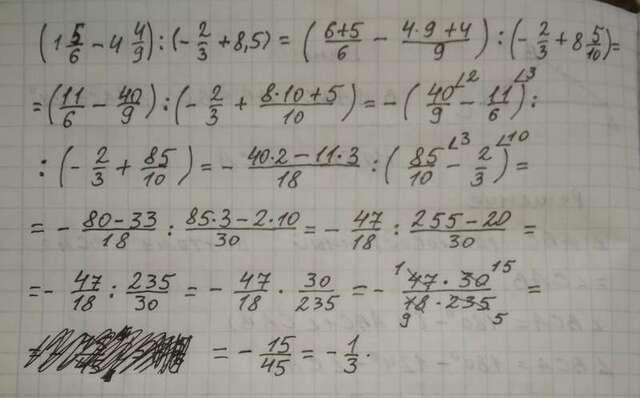 (1 5/6 - 4 4/9) : (- 2/3 + 8,5) = ( (6+5)/6 - (4·9+4)/9 ) : (- 2/3 + 8 5/10) =
= (11/6 - 40/9) : (- 2/3 + (8·10+5)/10 ) = - ( 40/9 ∠2 - 11/6 ∠3 ) :
: (- 2/3 + 85/10 ) = - (40·2-11·3)/18 : ( 85/10 ∠3 - 2/3 ∠10 ) =
= - (80-33)/18 : (85·3-2·10)/30 = - 47/18 : (255-20)/30 =
= - 47/18 : 235/30 = - 47/18 · 30/235 = - 1 47·30 15 / 9 18·235 5 =
= - 15/45 = - 1/3.